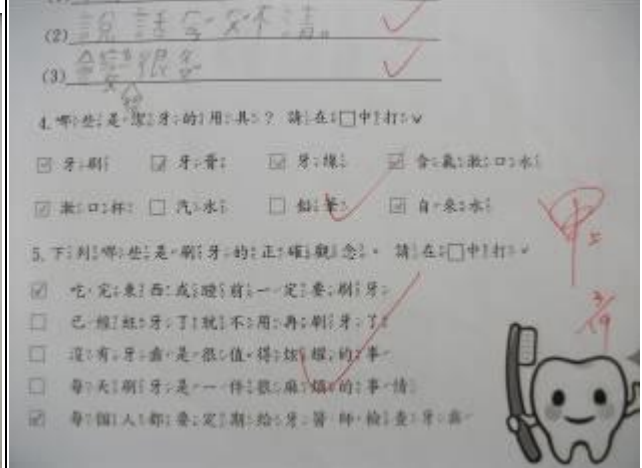 (2) 說話
(3) 會 很
4. 哪些是潔牙的用具?請在□中打ˇ
☑ 牙刷 ☑ 牙膏 ☑ 牙線 ☑ 含氟漱口水
☑ 漱口杯 □ 汽水 □ 鉛筆 ☑ 自來水
5. 下列哪些是刷牙的正確觀念。請在□中打ˇ
☑ 吃完東西或睡前一定要刷牙
□ 已經蛀牙了就不用再刷牙了
□ 沒有牙齒是很值得炫耀的事
□ 每天刷牙是一件很麻煩的事情
☑ 每個人都要定期給牙醫師檢查牙齒
甲
3/19